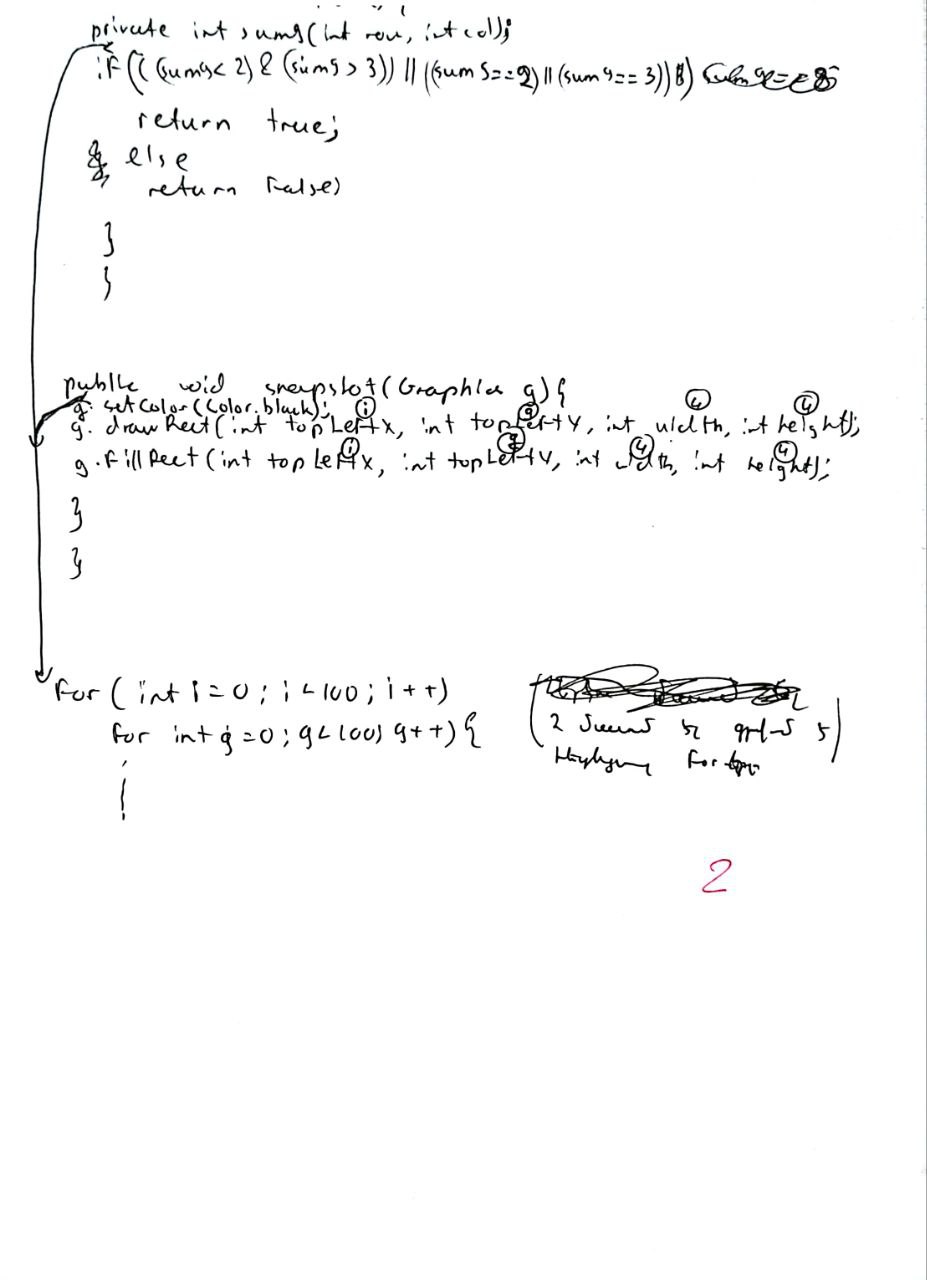 private int sum9(int row, int col);
if (((sum9 < 2) & (sum9 > 3)) || ((sum 9 == 2) || (sum 9 == 3)))
return true;
else
return False)
}
}
public void snapshot(Graphics g){
g. setColor(Color.black);
i g 4 4
g. drawRect(int topLeftx, int topLeftY, int width, int height);
i g 4 4
g. fillRect(int topLeftx, int topLeftY, int width, int height);
}
}
For ( int i = 0 ; i < 100 ; i + +)
for int g = 0 ; g < 100) g + +) {
2
For
2